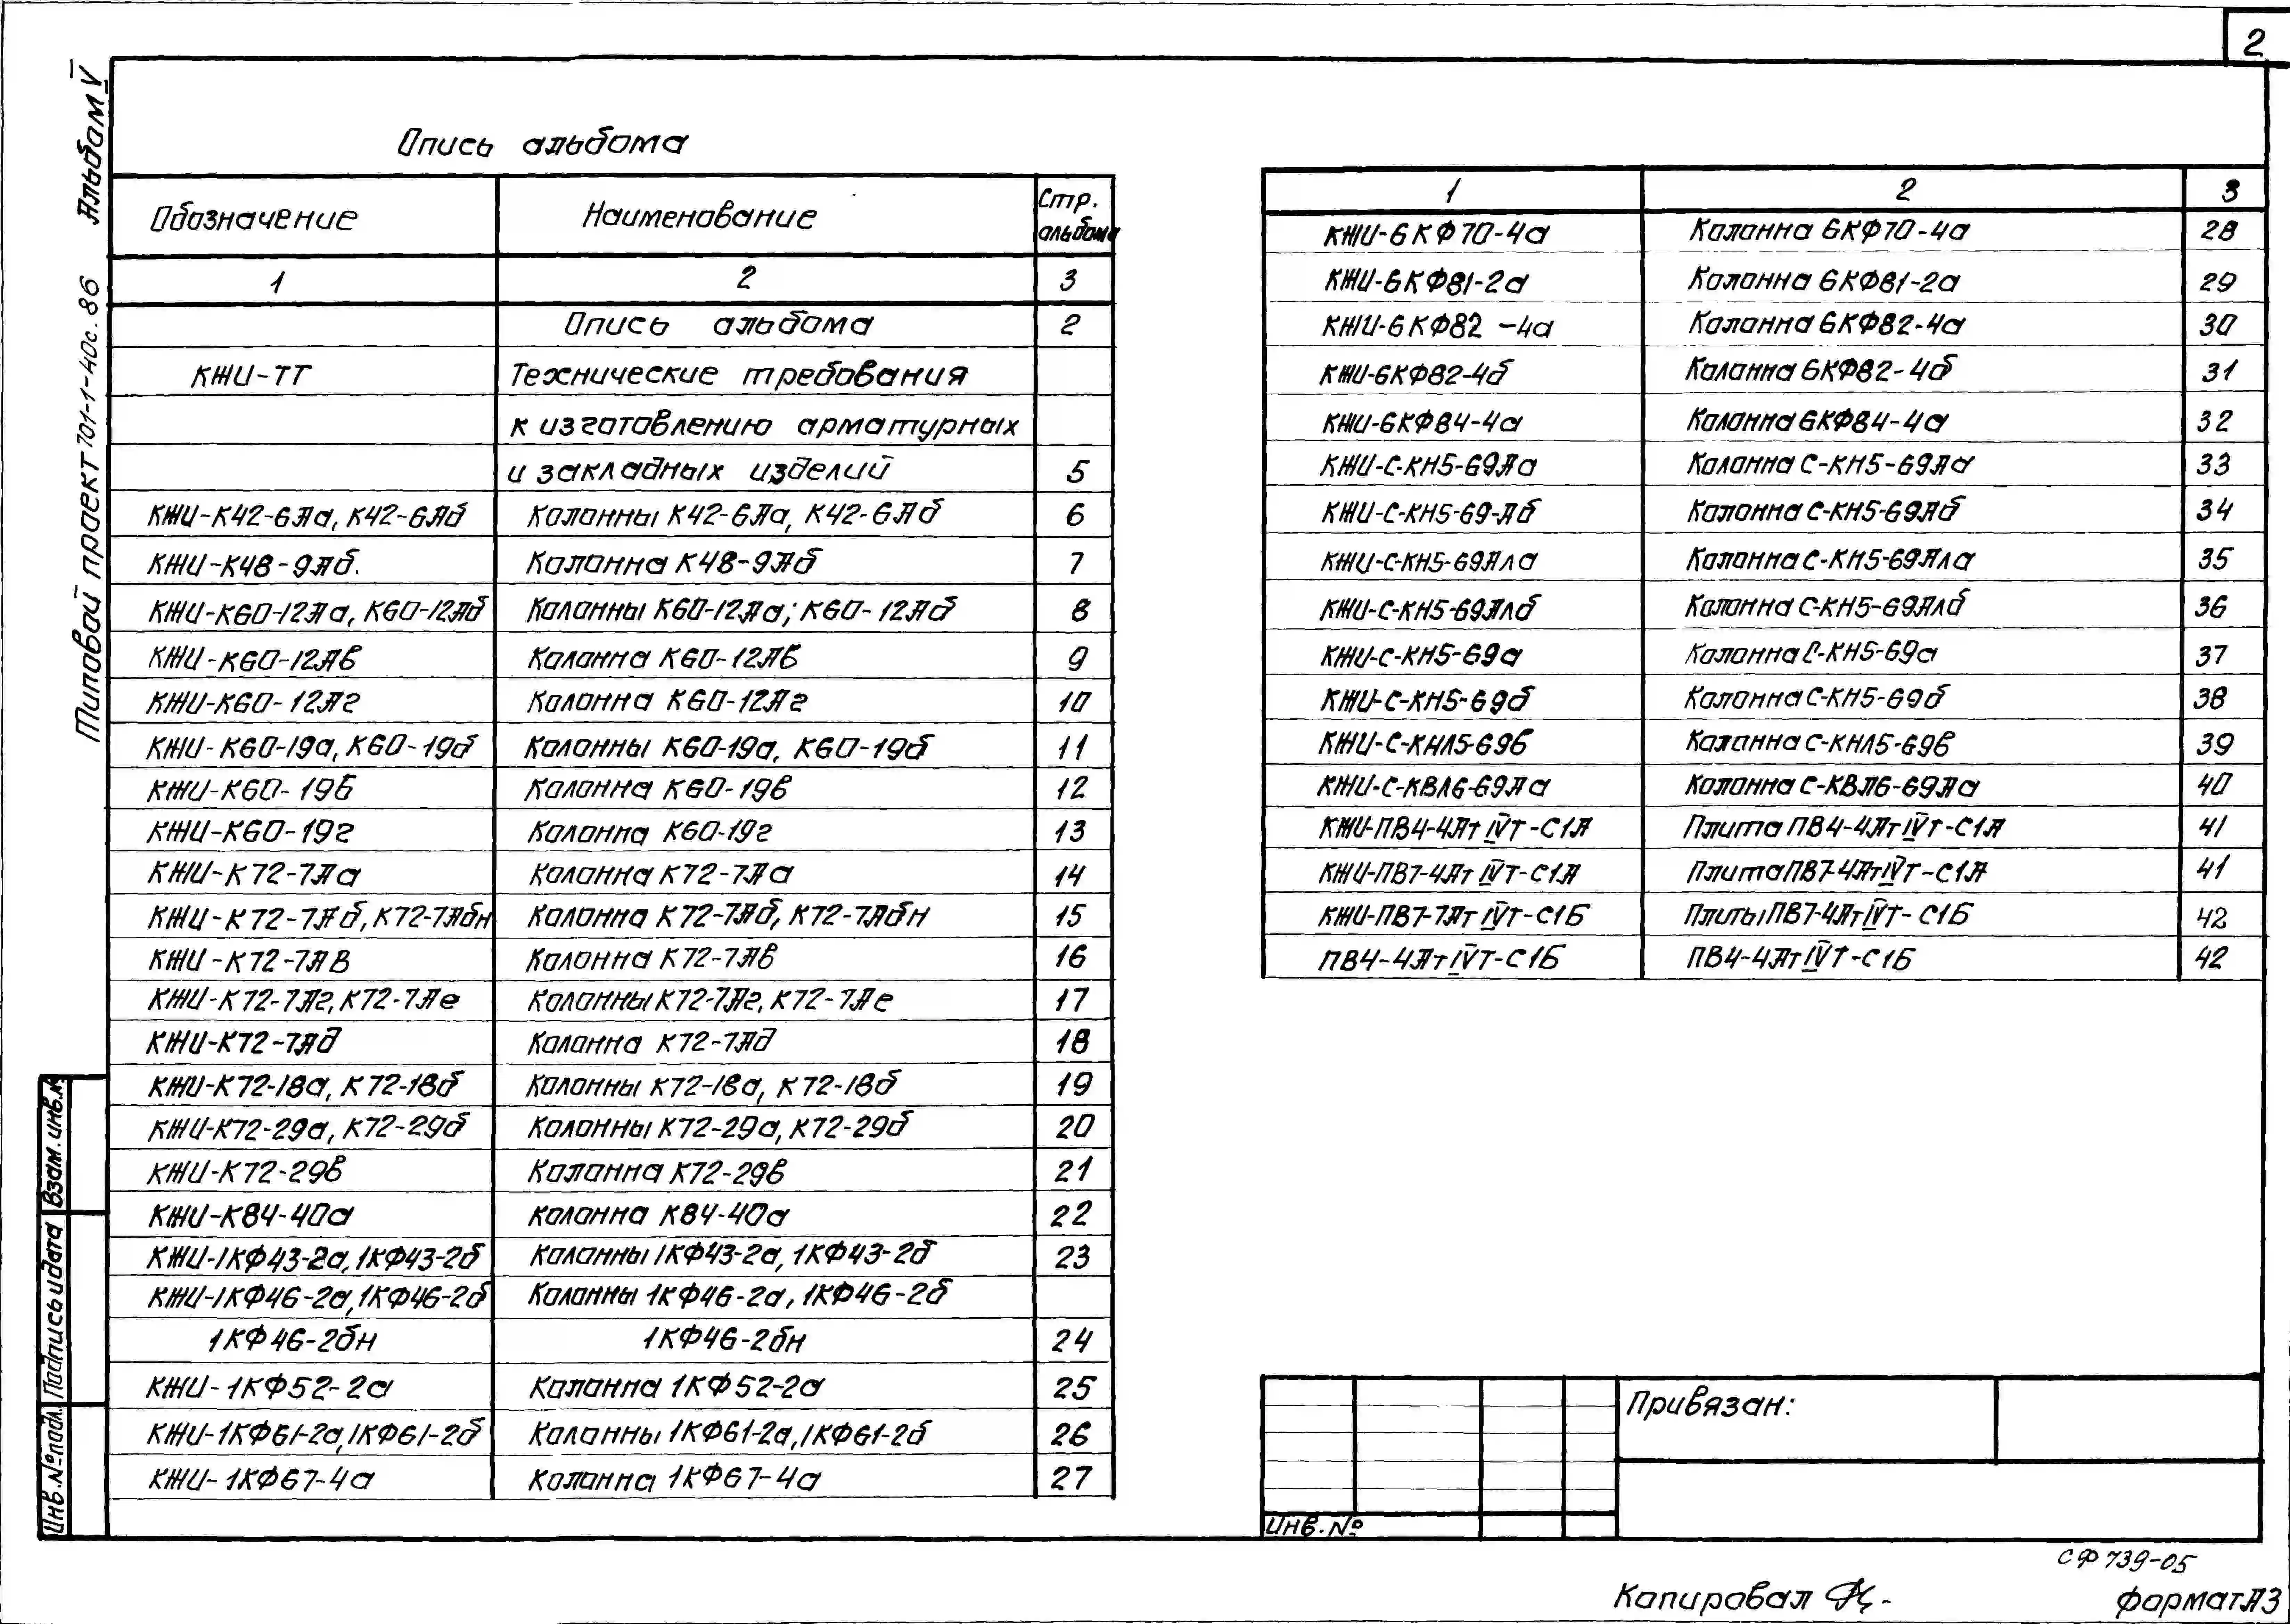 2
Альбом V
Типовой проект 701-1-40с.86
Опись альбома
Обозначение Наименование Стр. альбома
1 2 3
Опись альбома 2
КЖИ-ТТ Технические требования
к изготовлению арматурных
и закладных изделий 5
КЖИ-К42-6Аа, К42-6Аб Колонны К42-6Аа, К42-6Аб 6
КЖИ-К48-9Аб. Колонна К48-9Аб 7
КЖИ-К60-12Аа, К60-12Аб Колонны К60-12Аа; К60-12Аб 8
КЖИ-К60-12Ав Колонна К60-12Ав 9
КЖИ-К60-12Аг Колонна К60-12Аг 10
КЖИ-К60-19а, К60-19б Колонны К60-19а, К60-19б 11
КЖИ-К60-19в Колонна К60-19в 12
КЖИ-К60-19г Колонна К60-19г 13
КЖИ-К72-7Аа Колонна К72-7Аа 14
КЖИ-К72-7Аб, К72-7Абн Колонна К72-7Аб, К72-7Абн 15
КЖИ-К72-7Ав Колонна К72-7Ав 16
КЖИ-К72-7Аг, К72-7Ае Колонны К72-7Аг, К72-7Ае 17
КЖИ-К72-7Ад Колонна К72-7Ад 18
КЖИ-К72-18а, К72-18б Колонны К72-18а, К72-18б 19
КЖИ-К72-29а, К72-29б Колонны К72-29а, К72-29б 20
КЖИ-К72-29в Колонна К72-29в 21
КЖИ-К84-40а Колонна К84-40а 22
КЖИ-1КФ43-2а, 1КФ43-2б Колонны 1КФ43-2а, 1КФ43-2б 23
КЖИ-1КФ46-2а, 1КФ46-2б Колонны 1КФ46-2а, 1КФ46-2б
1КФ46-2бн 1КФ46-2бн 24
КЖИ-1КФ52-2а Колонна 1КФ52-2а 25
КЖИ-1КФ61-2а, 1КФ61-2б Колонны 1КФ61-2а, 1КФ61-2б 26
КЖИ-1КФ67-4а Колонна 1КФ67-4а 27
1 2 3
КЖИ-6КФ70-4а Колонна 6КФ70-4а 28
КЖИ-6КФ81-2а Колонна 6КФ81-2а 29
КЖИ-6КФ82-4а Колонна 6КФ82-4а 30
КЖИ-6КФ82-4б Колонна 6КФ82-4б 31
КЖИ-6КФ84-4а Колонна 6КФ84-4а 32
КЖИ-С-КН5-69Аа Колонна С-КН5-69Аа 33
КЖИ-С-КН5-69-Аб Колонна С-КН5-69Аб 34
КЖИ-С-КН5-69Ала Колонна С-КН5-69Ала 35
КЖИ-С-КН5-69Алб Колонна С-КН5-69Алб 36
КЖИ-С-КН5-69а Колонна С-КН5-69а 37
КЖИ-С-КН5-69б Колонна С-КН5-69б 38
КЖИ-С-КНЛ5-69в Колонна С-КНЛ5-69в 39
КЖИ-С-КВЛ6-69Аа Колонна С-КВЛ6-69Аа 40
КЖИ-ПВ4-4Ат IVТ-С1А Плита ПВ4-4Ат IVТ-С1А 41
КЖИ-ПВ7-4Ат IVТ-С1А Плита ПВ7-4Ат IVТ-С1А 41
КЖИ-ПВ7-7Ат IVТ-С1Б Плиты ПВ7-4Ат IVТ-С1Б 42
ПВ4-4Ат IVТ-С1Б ПВ4-4Ат IVТ-С1Б 42
Взам. инв. №
Подпись и дата
Инв. № подл.
Привязан:
Инв. №
СФ 739-05
Копировал
формат А3